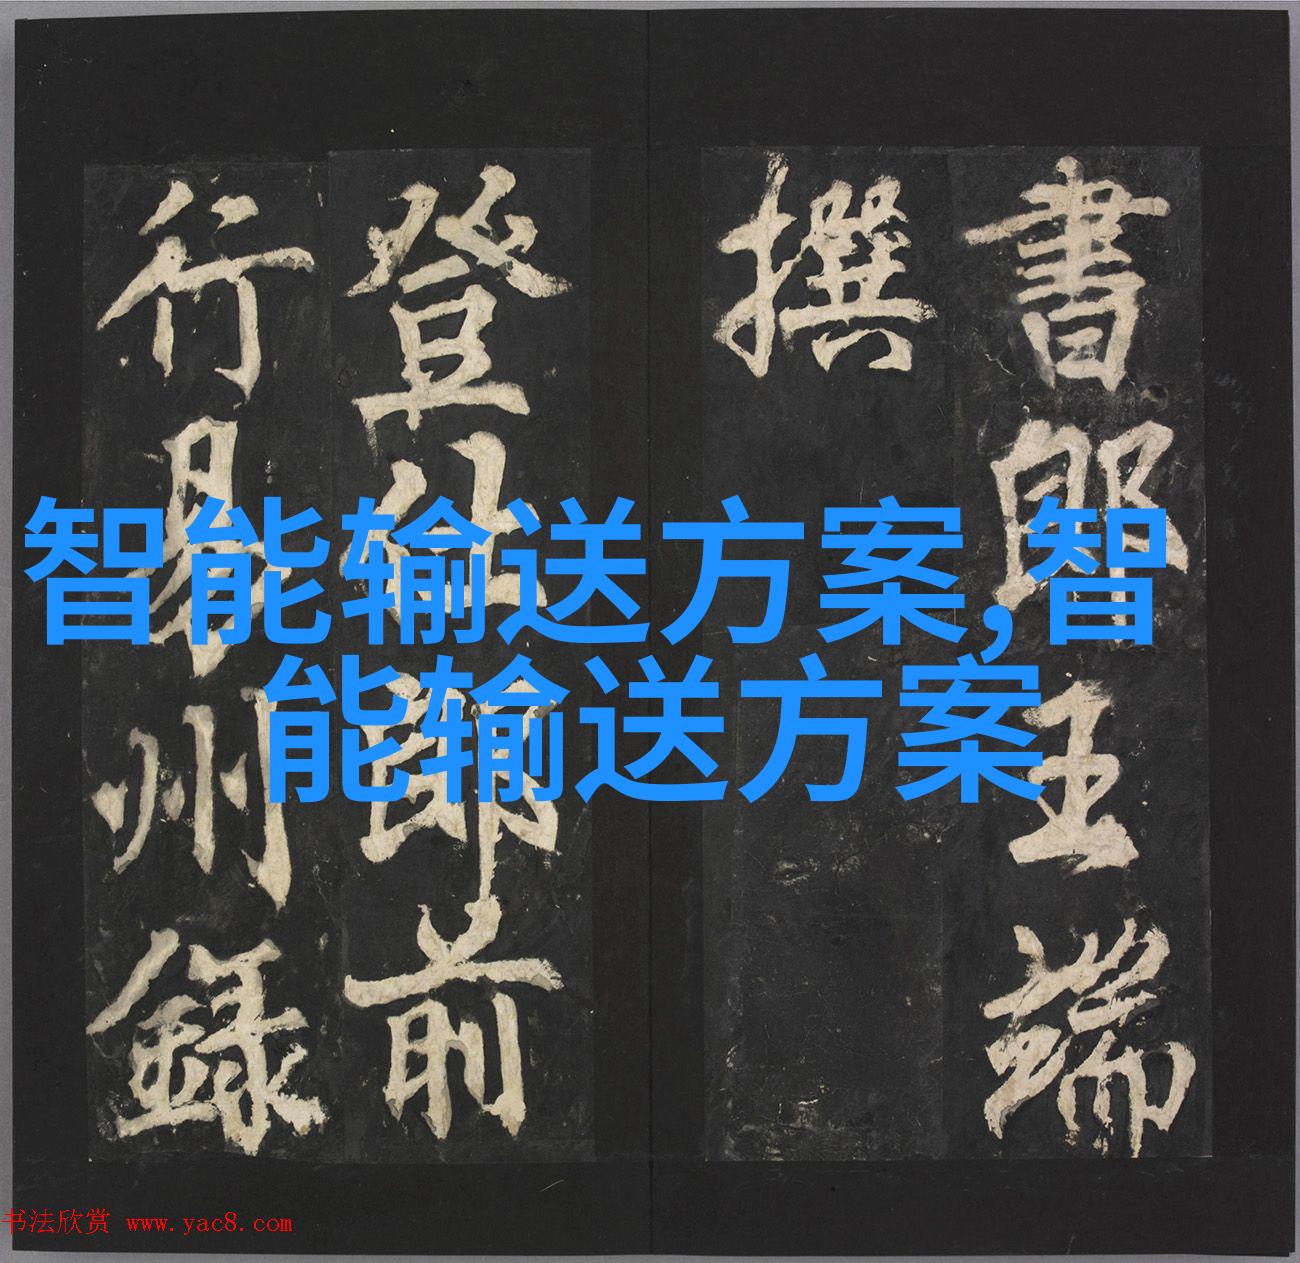 書郎王端
撰
登仕郎前
行易州錄
智能输送方案,智
能输送方案
书法欣赏 www.yac8.com